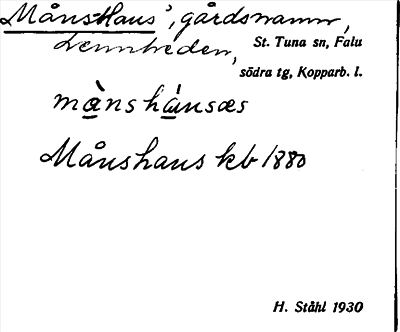 MånsHans', gårdsnamn,
Lennheden, St. Tuna sn, Falu
södra tg, Kopparb. l.
mànshánsæs
Månshans kb 1880
H. Ståhl 1930